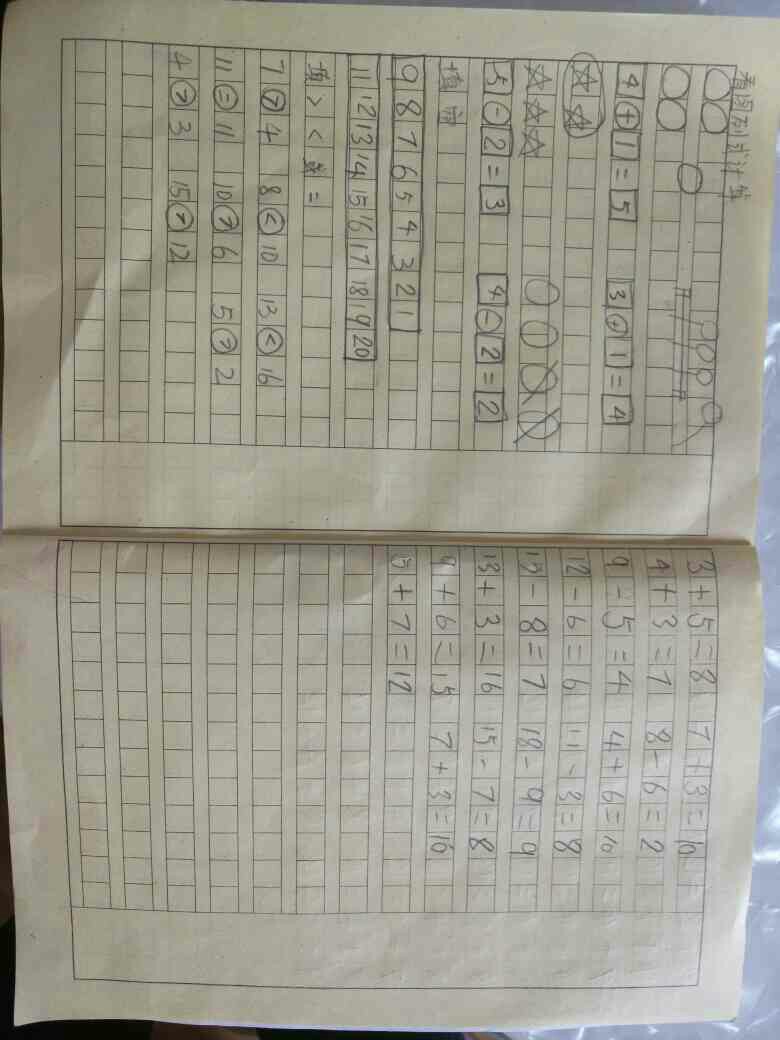 看图列式计算
4+1=5 3+1=4
5-2=3 4-2=2
填
9 8 7 6 5 4 3 2 1
11 12 13 14 15 16 17 18 19 20
填 > < =
7>4 8<10 13<16
11=11 10>6 5>2
4>3 15>12
3+5=8 7+3=10
4+3=7 8-6=2
9-5=4 4+6=10
12-6=6 11-3=8
15-8=7 18-9=9
13+3=16 15-7=8
9+6=15 7+3=10
5+7=12